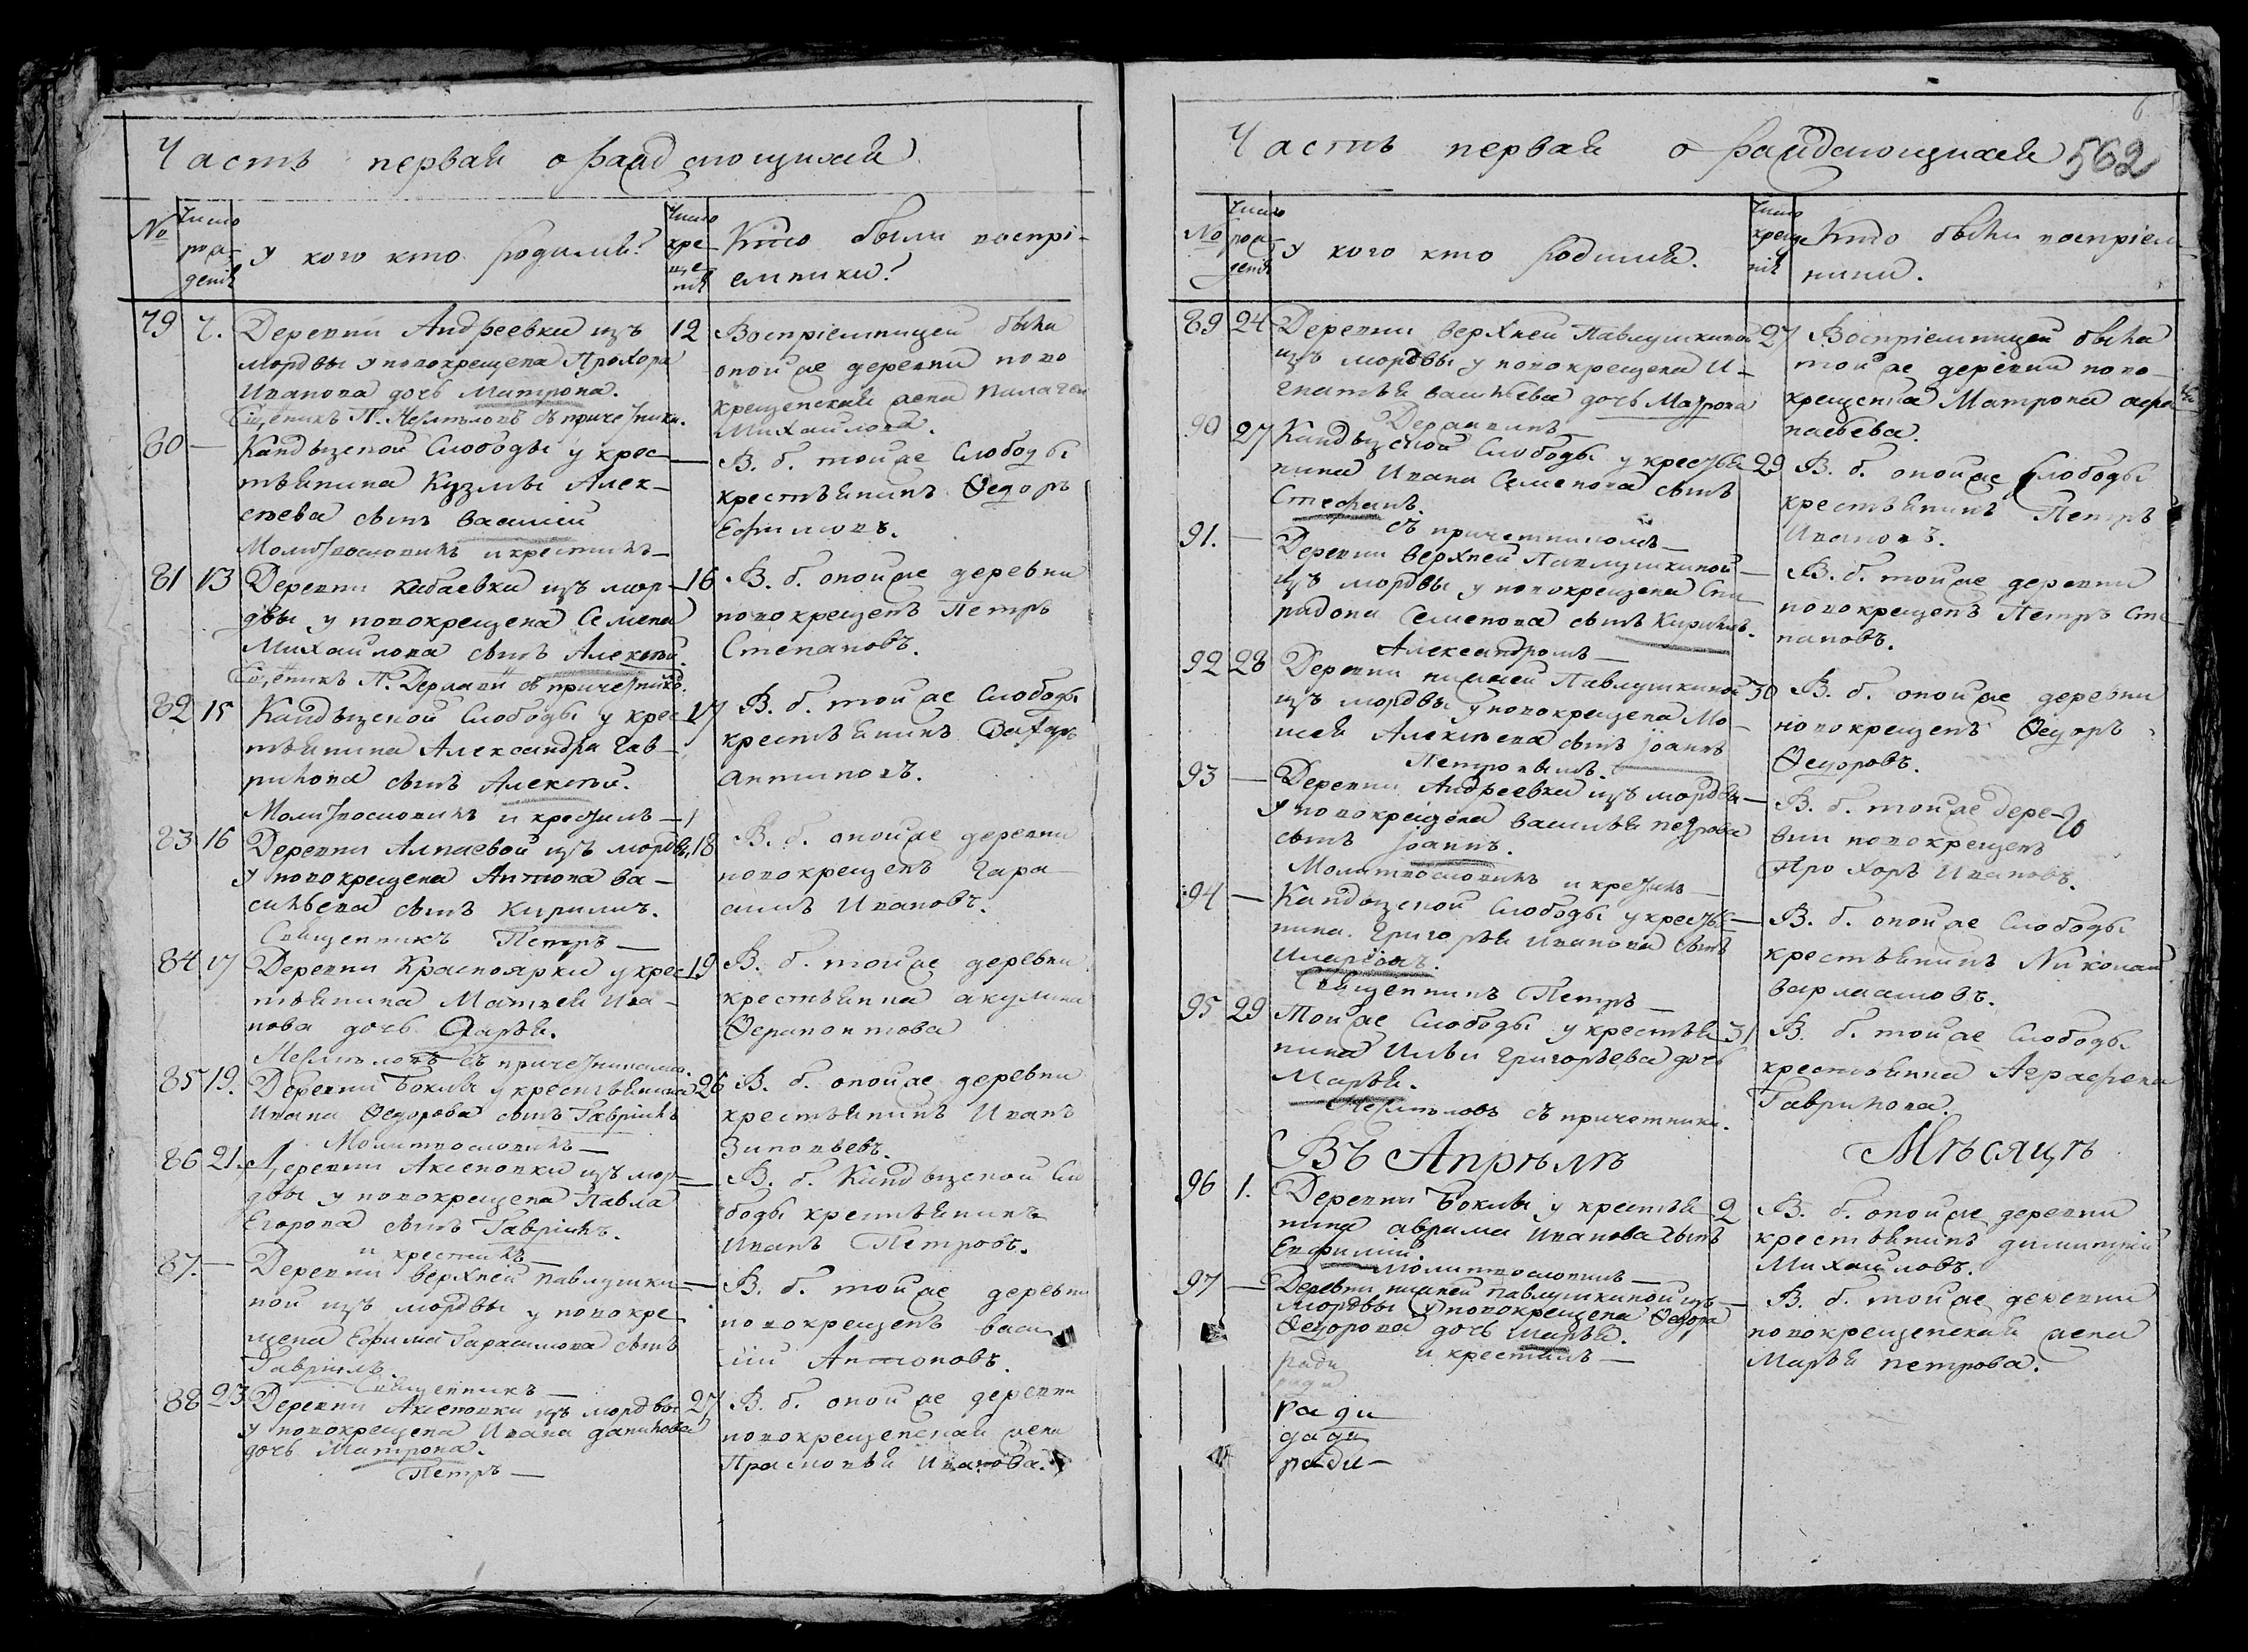 Часть первая о раждающихся
№
Число рож-дениѣ
у кого кто родились?
Число кре-ще-ниѣ
Кто были воспрі-
емники?
79 7. Деревни Андреевки изъ
мордвы у новокрещена Прохора
Иванова дочь Матрона.
12 Воспріемницей была
оной же деревни ново
крещенская жена Палагея
Михайлова.
съ причетники.
80 — Кандызской Слободы у крес-
тьянина Кузмы Алек-
сѣева сынъ Василій
Молитвословилъ и крестилъ —
— В. б. той же Слободы
крестьянинъ Ѳедоръ
Ефимовъ.
81 13 Деревни Кабаевки изъ мор-
двы у новокрещена Семена
Михайлова сынъ Алексѣй.
16 В. б. оной же деревни
новокрещенъ Петръ
Степановъ.
П. Державинъ съ причетники.
82 15 Кандызской Слободы у крес-
тьянина Александра Гав-
рилова сынъ Алексѣй.
Молитвословилъ и крестилъ —
17 В. б. той же Слободы
крестьянинъ
Антиповъ.
83 16 Деревни Алпаевой изъ мордвы
у новокрещена Антона Ва-
сильева сынъ Кирилъ.
Священникъ Петръ —
18 В. б. оной же деревни
новокрещенъ Гара-
симъ Ивановъ.
84 17 Деревни Красноярки у крес-
тьянина Матвея Ива-
нова дочь Дарья.
съ причетниками.
19 В. б. той же деревни
крестьянка Акулина
Ѳерапонтова
85 19. Деревни Боклы у крестьянина
Ивана Ѳедорова сынъ Гавріилъ
Молитвословилъ —
26 В. б. оной же деревни
крестьянинъ Иванъ
Зиновьевъ.
86 21. Деревни Аксеновки изъ мор-
двы у новокрещена Павла
Егорова сынъ Гавріилъ.
и крестилъ —
— В. б. Кандызской Сло
боды крестьянинъ
Иванъ Петровъ.
87. — Деревни Верхней Павлушки-
ной изъ мордвы у новокре
щена Ефима сынъ
Гавріилъ.
Священникъ —
— В. б. той же деревни
новокрещенъ Васи
лій Антоновъ.
88 23 Деревни Аксеновки изъ мордвы
у новокрещена Ивана Данилова
дочь Матрона.
Петръ —
27 В. б. оной же деревни
новокрещенская жена
Прасковья Иванова.
Часть первая о раждающихся 562
№
Число рож-дениѣ
у кого кто родился.
Число крещениѣ
Кто были воспріем-
ники.
89 24 Деревни Верхней Павлушкиной
изъ мордвы у новокрещена И-
гнатья Васильева дочь Матрона
Державинъ —
27 Воспріемницей была
той же деревни ново-
крещенка Матрона
90 27 Кандызской Слободы у крестья
нина Ивана Семенова сынъ
Стефанъ.
съ причетникомъ —
29 В. б. оной же Слободы
крестьянинъ Петръ
Ивановъ.
91. — Деревни Верхней Павлушкиной
изъ мордвы у новокрещена Спи
ридона Семенова сынъ Кирилъ.
Александромъ —
— В. б. той же деревни
новокрещенъ Петръ Сте
пановъ.
92 28 Деревни нижней Павлушкиной
изъ мордвы у новокрещена Мо-
исея Алексѣева сынъ Іоаннъ
Петровымъ.
30 В. б. оной же деревни
новокрещенъ Ѳедоръ
Ѳедоровъ.
93 — Деревни Андреевки изъ мордвы
у новокрещена Василья Петрова
сынъ Іоаннъ.
Молитвословилъ и крестилъ —
— В. б. той же дере-
вни новокрещенъ
Прохоръ Ивановъ.
94 — Кандызской Слободы у крестья
нина Григорья Иванова сынъ
Иларіонъ.
Священникъ Петръ —
— В. б. оной же Слободы
крестьянинъ Николай
Варлаамовъ.
95 29 Той же Слободы у крестья
нина Ильи Григорьева дочь
Марья.
съ причетники.
31 В. б. той же Слободы
крестьянка Аграфена
Гаврилова.
Въ Апрѣлѣ Мѣсяцѣ
96 1. Деревни Боклы у крестья
нина Аврама Иванова сынъ
Евфимій.
Молитвословилъ —
2 В. б. оной же деревни
крестьянинъ Димитрій
Михайловъ.
97 — Деревни нижней Павлушкиной изъ
мордвы у новокрещена Ѳедора
Ѳедорова дочь Марья.
и крестилъ —
— В. б. той же деревни
новокрещенская жена
Марья Петрова.
ради
ради
ради
дади
ради —